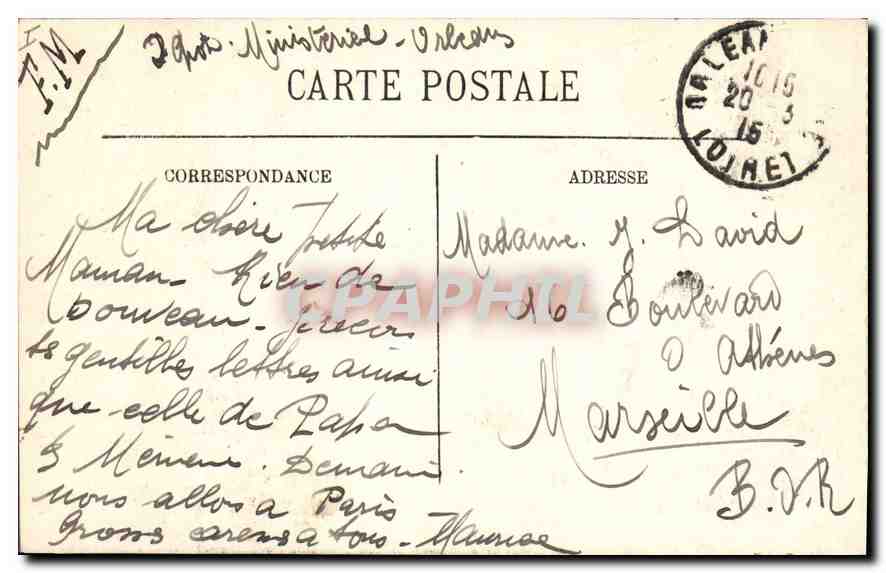 F.M
Dépôt Ministériel - Orléans
CARTE POSTALE
ORLEANS
10 15
20 - 3
15
LOIRET
CORRESPONDANCE
ADRESSE
Ma chère petite
Maman - Rien de
nouveau - je reçois
tes gentilles lettres ainsi
que celle de Papa
& Mémène. Demain
nous allons à Paris
Grosses caresses à tous - Maurice
Madame J. David
Boulevard
D'Athènes
Marseille
B.D.R
CPAPHIL